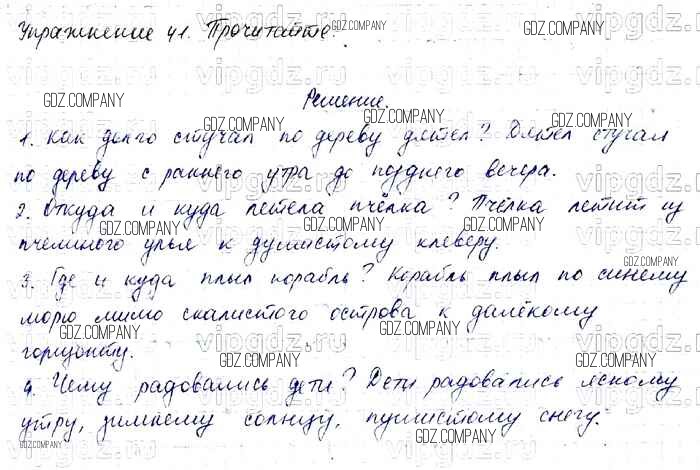 Упражнение 41. Прочитайте.
Решение.
1. Как долго стучал по дереву дятел? Дятел стучал
по дереву с раннего утра до позднего вечера.
2. Откуда и куда летела пчёлка? Пчёлка летит из
пчелиного улья к душистому клеверу.
3. Где и куда плыл корабль? Корабль плыл по синему
морю мимо скалистого острова к далёкому
горизонту.
4. Чему радовались дети? Дети радовались ясному
утру, зимнему солнцу, пушистому снегу.